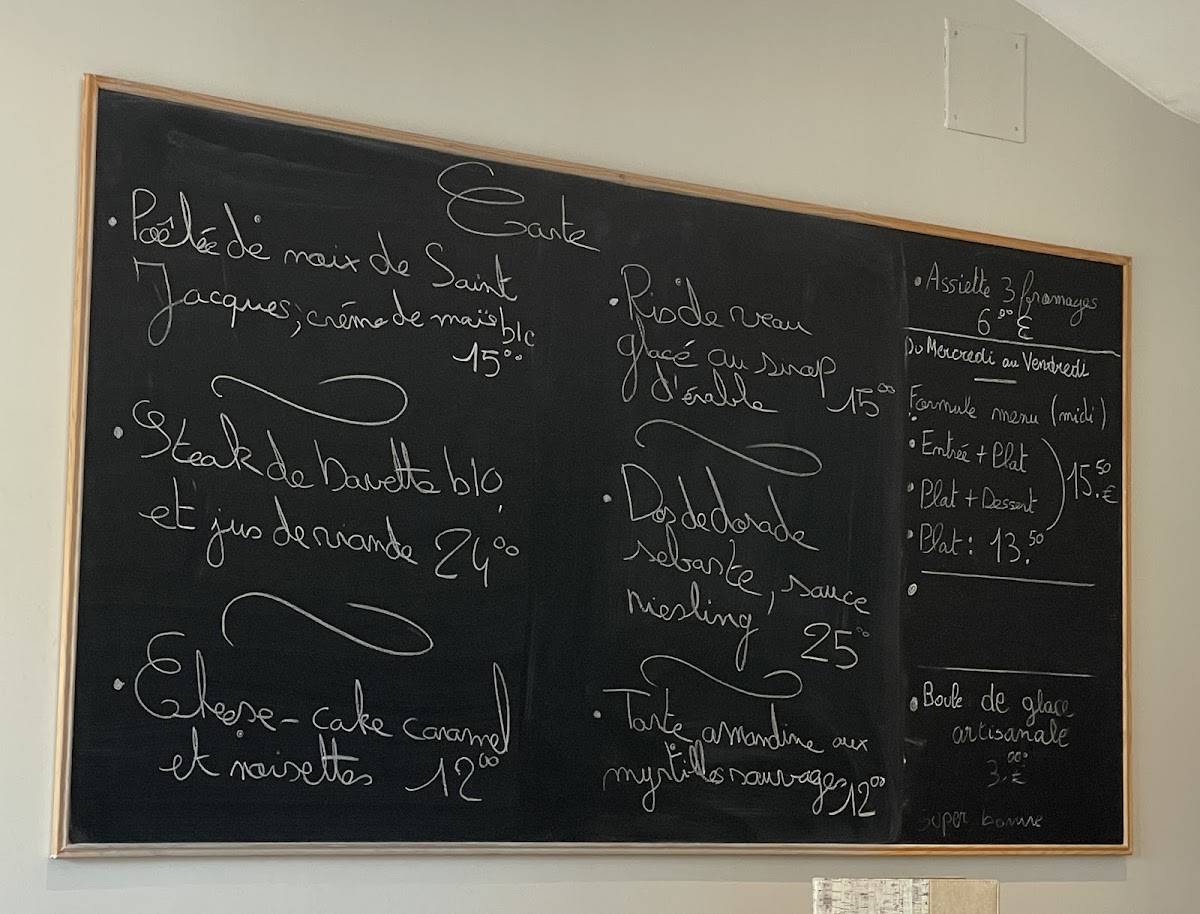 Carte
• Poêlée de noix de Saint
Jacques, crème de maïs bio
15°°
• Steak de bavette bio,
et jus de viande 24°°
• Cheese-cake caramel
et noisettes 12°°
• Ris de veau
glacé au sirop
d'érable 15°°
• Dos de dorade
sebaste, sauce
riesling 25°°
• Tarte amandine aux
myrtilles sauvages 12°°
• Assiette 3 fromages
6°° €
Du Mercredi au Vendredi
Formule menu (midi)
• Entrée + Plat
• Plat + Dessert
15.50 €
• Plat : 13.50
• Boule de glace
artisanale
3.°° €
super bonne